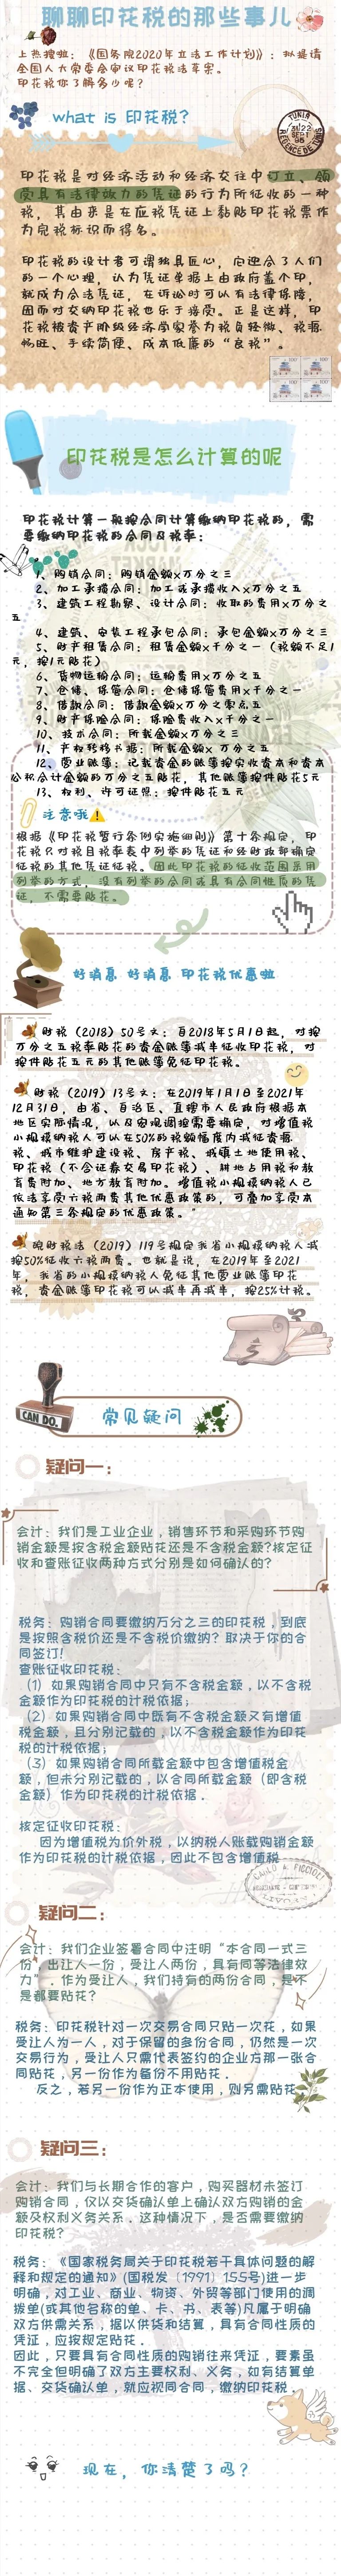 聊聊印花税的那些事儿
上热搜啦：《国务院2020年立法工作计划》：拟提请
全国人大常委会审议印花税法草案。
印花税你了解多少呢？
what is 印花税?
印花税是对经济活动和经济交往中订立、领
受具有法律效力的凭证的行为所征收的一种
税，其由来是在应税凭证上黏贴印花税票作
为完税标识而得名。
印花税的设计者可谓独具匠心，它迎合了人们
的一个心理，认为凭证单据上由政府盖个印，
就成为合法凭证，在诉讼时可以有法律保障，
因而对交纳印花税也乐于接受。正是这样，印
花税被资产阶级经济学家誉为税负轻微、税源
畅旺、手续简便、成本低廉的“良税”。
印花税是怎么计算的呢
印花税计算一般按合同计算缴纳印花税的，需
要缴纳印花税的合同及税率：
1、购销合同：购销金额x万分之三
2、加工承揽合同：加工或承揽收入x万分之五
3、建筑工程勘察、设计合同：收取的费用x万分之
五
4、建筑、安装工程承包合同：承包金额x万分之三
5、财产租赁合同：租赁金额x千分之一（税额不足1
元，按1元贴花）
6、货物运输合同：运输费用x万分之五
7、仓储、保管合同：仓储保管费用x千分之一
8、借款合同：借款金额x万分之零点五
9、财产保险合同：保险费收入x千分之一
10、技术合同：所载金额x万分之三
11、产权转移书据：所载金额x 万分之五
12、营业账簿：记载资金的账簿按实收资本和资本
公积合计金额的万分之五贴花，其他账簿按件贴花5元
13、权利、许可证照：按件贴花五元
注意哦
根据《印花税暂行条例实施细则》第十条规定，印
花税只对税目税率表中列举的凭证和经财政部确定
征税的其他凭证征税。因此印花税的征收范围采用
列举的方式，没有列举的合同或具有合同性质的凭
证，不需要贴花。
好消息 好消息 印花税优惠啦
财税（2018）50号文：自2018年5月1日起，对按
万分之五税率贴花的资金账簿减半征收印花税，对
按件贴花五元的其他账簿免征印花税。
财税（2019）13号文：在2019年1月1日至2021年
12月31日，由省、自治区、直辖市人民政府根据本
地区实际情况，以及宏观调控需要确定，对增值税
小规模纳税人可以在50%的税额幅度内减征资源
税、城市维护建设税、房产税、城镇土地使用税、
印花税（不含证券交易印花税）、耕地占用税和教
育费附加、地方教育附加。增值税小规模纳税人已
依法享受六税两费其他优惠政策的，可叠加享受本
通知第三条规定的优惠政策。”
皖财税法（2019）119号规定我省小规模纳税人减
按50%征收六税两费。也就是说，在2019年至2021
年，我省的小规模纳税人免征其他营业账簿印花
税，资金账簿印花税可以减半再减半，按25%计税。
CAN DO.
常见疑问
疑问一：
会计：我们是工业企业，销售环节和采购环节购
销金额是按含税金额贴花还是不含税金额?核定征
收和查账征收两种方式分别是如何确认的?
税务：购销合同要缴纳万分之三的印花税，到底
是按照含税价还是不含税价缴纳？取决于你的合
同签订!
查账征收印花税：
（1）如果购销合同中只有不含税金额，以不含税
金额作为印花税的计税依据；
（2）如果购销合同中既有不含税金额又有增值
税金额，且分别记载的，以不含税金额作为印花
税的计税依据；
（3）如果购销合同所载金额中包含增值税金
额，但未分别记载的，以合同所载金额（即含税
金额）作为印花税的计税依据．
核定征收印花税：
因为增值税为价外税，以纳税人账载购销金额
作为印花税的计税依据，因此不包含增值税
疑问二：
会计：我们企业签署合同中注明“本合同一式三
份，出让人一份，受让人两份，具有同等法律效
力”．作为受让人，我们持有的两份合同，是不
是都要贴花？
税务：印花税针对一次交易合同只贴一次花，如果
受让人为一人，对于保留的多份合同，仍然是一次
交易行为，受让人只需代表签约的企业方那一张合
同贴花，另一份作为备份不用贴花．
反之，若另一份作为正本使用，则另需贴花
疑问三：
会计：我们与长期合作的客户，购买器材未签订
购销合同，仅以交货确认单上确认双方购销的金
额及权利义务关系．这种情况下，是否需要缴纳
印花税？
税务：《国家税务局关于印花税若干具体问题的解
释和规定的通知》(国税发〔1991〕155号)进一步
明确，对工业、商业、物资、外贸等部门使用的调
拨单(或其他名称的单、卡、书、表等)凡属于明确
双方供需关系，据以供货和结算，具有合同性质的
凭证，应按规定贴花．
因此，只要具有合同性质的购销往来凭证，要素虽
不完全但明确了双方主要权利、义务，如有结算单
据、交货确认单，就应视同合同，缴纳印花税．
现在，你清楚了吗？